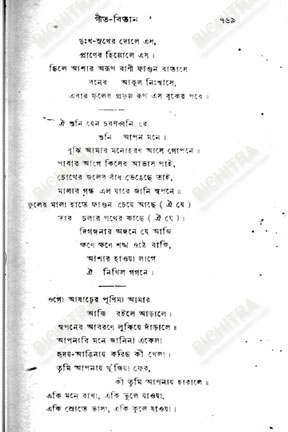 গীত-বিতান ৭৬৯
দুঃখ-সুখের দোলে এস,
প্রাণের হিল্লোলে এস।
ছিলে আশার অরূপ বাণী ফাগুন বাতাসে
বনের আকুল নিঃশ্বাসে,
এবার ফুলের প্রফুল্ল রূপ এস বুকের পরে।
ঐ শুনি যেন চরণধ্বনি রে
শুনি আপন মনে।
বুঝি আমার মনোহরণ আসে গোপনে॥
পাবার আগে কিসের আভাস পাই,
চোখের জলের বাঁধ ভেঙেছে তাই,
মালার গন্ধ এল যারে জানি স্বপনে॥
ফুলের মালা হাতে ফাগুন চেয়ে আছে (ঐ যে)
তার চলার পথের কাছে (ঐ যে)।
দিগঙ্গনার অঙ্গনে যে আজি
ক্ষণে ক্ষণে শঙ্খ ওঠে বাজি,
আশার হাওয়া লাগে
ঐ নিখিল গগনে।
ওগো আষাঢ়ের পূর্ণিমা আমার
আজি রইলে আড়ালে।
স্বপনের আবরণে লুকিয়ে দাঁড়ালে॥
আপনারি মনে জানিনা একেলা
হৃদয়-আঙিনায় করিছ কী খেলা।
তুমি আপনায় খুঁজিয়া ফের,
কী তুমি আপনায় হারালে॥
একি মনে রাখা, একি ভুলে যাওয়া,
একি স্রোতে ভাসা, একি কূলে যাওয়া।
BICHITRA